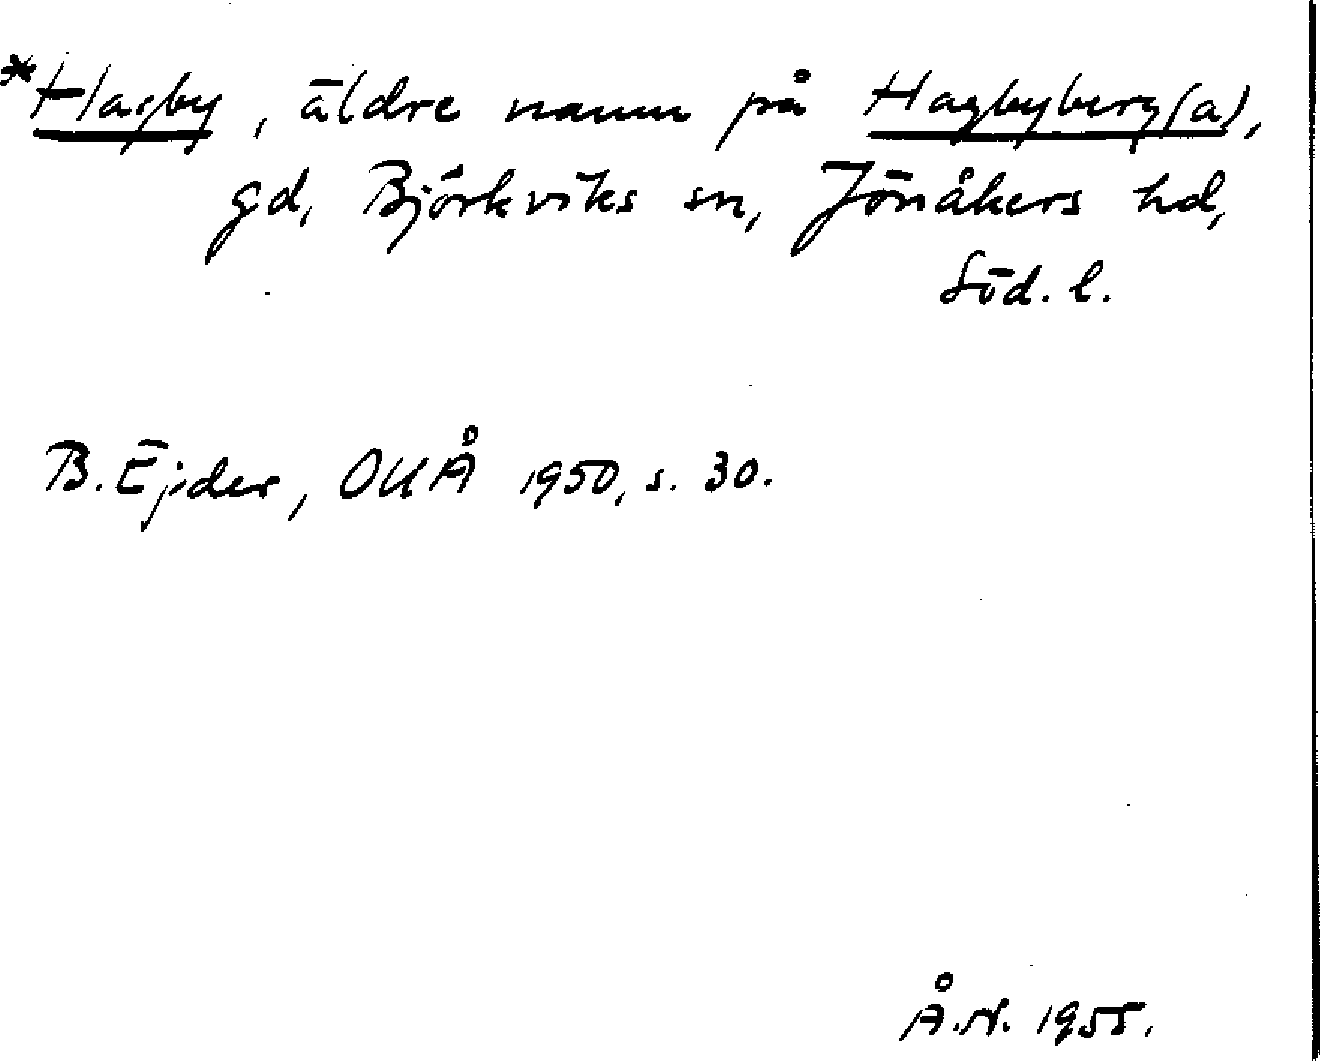 *Hagby, äldre namn på Hagbyberg(a),
gd, Björkviks sn, Jönåkers hd,
Söd. l.
B. Ejder, OUÅ 1950, s. 30.
Å.N. 1955.